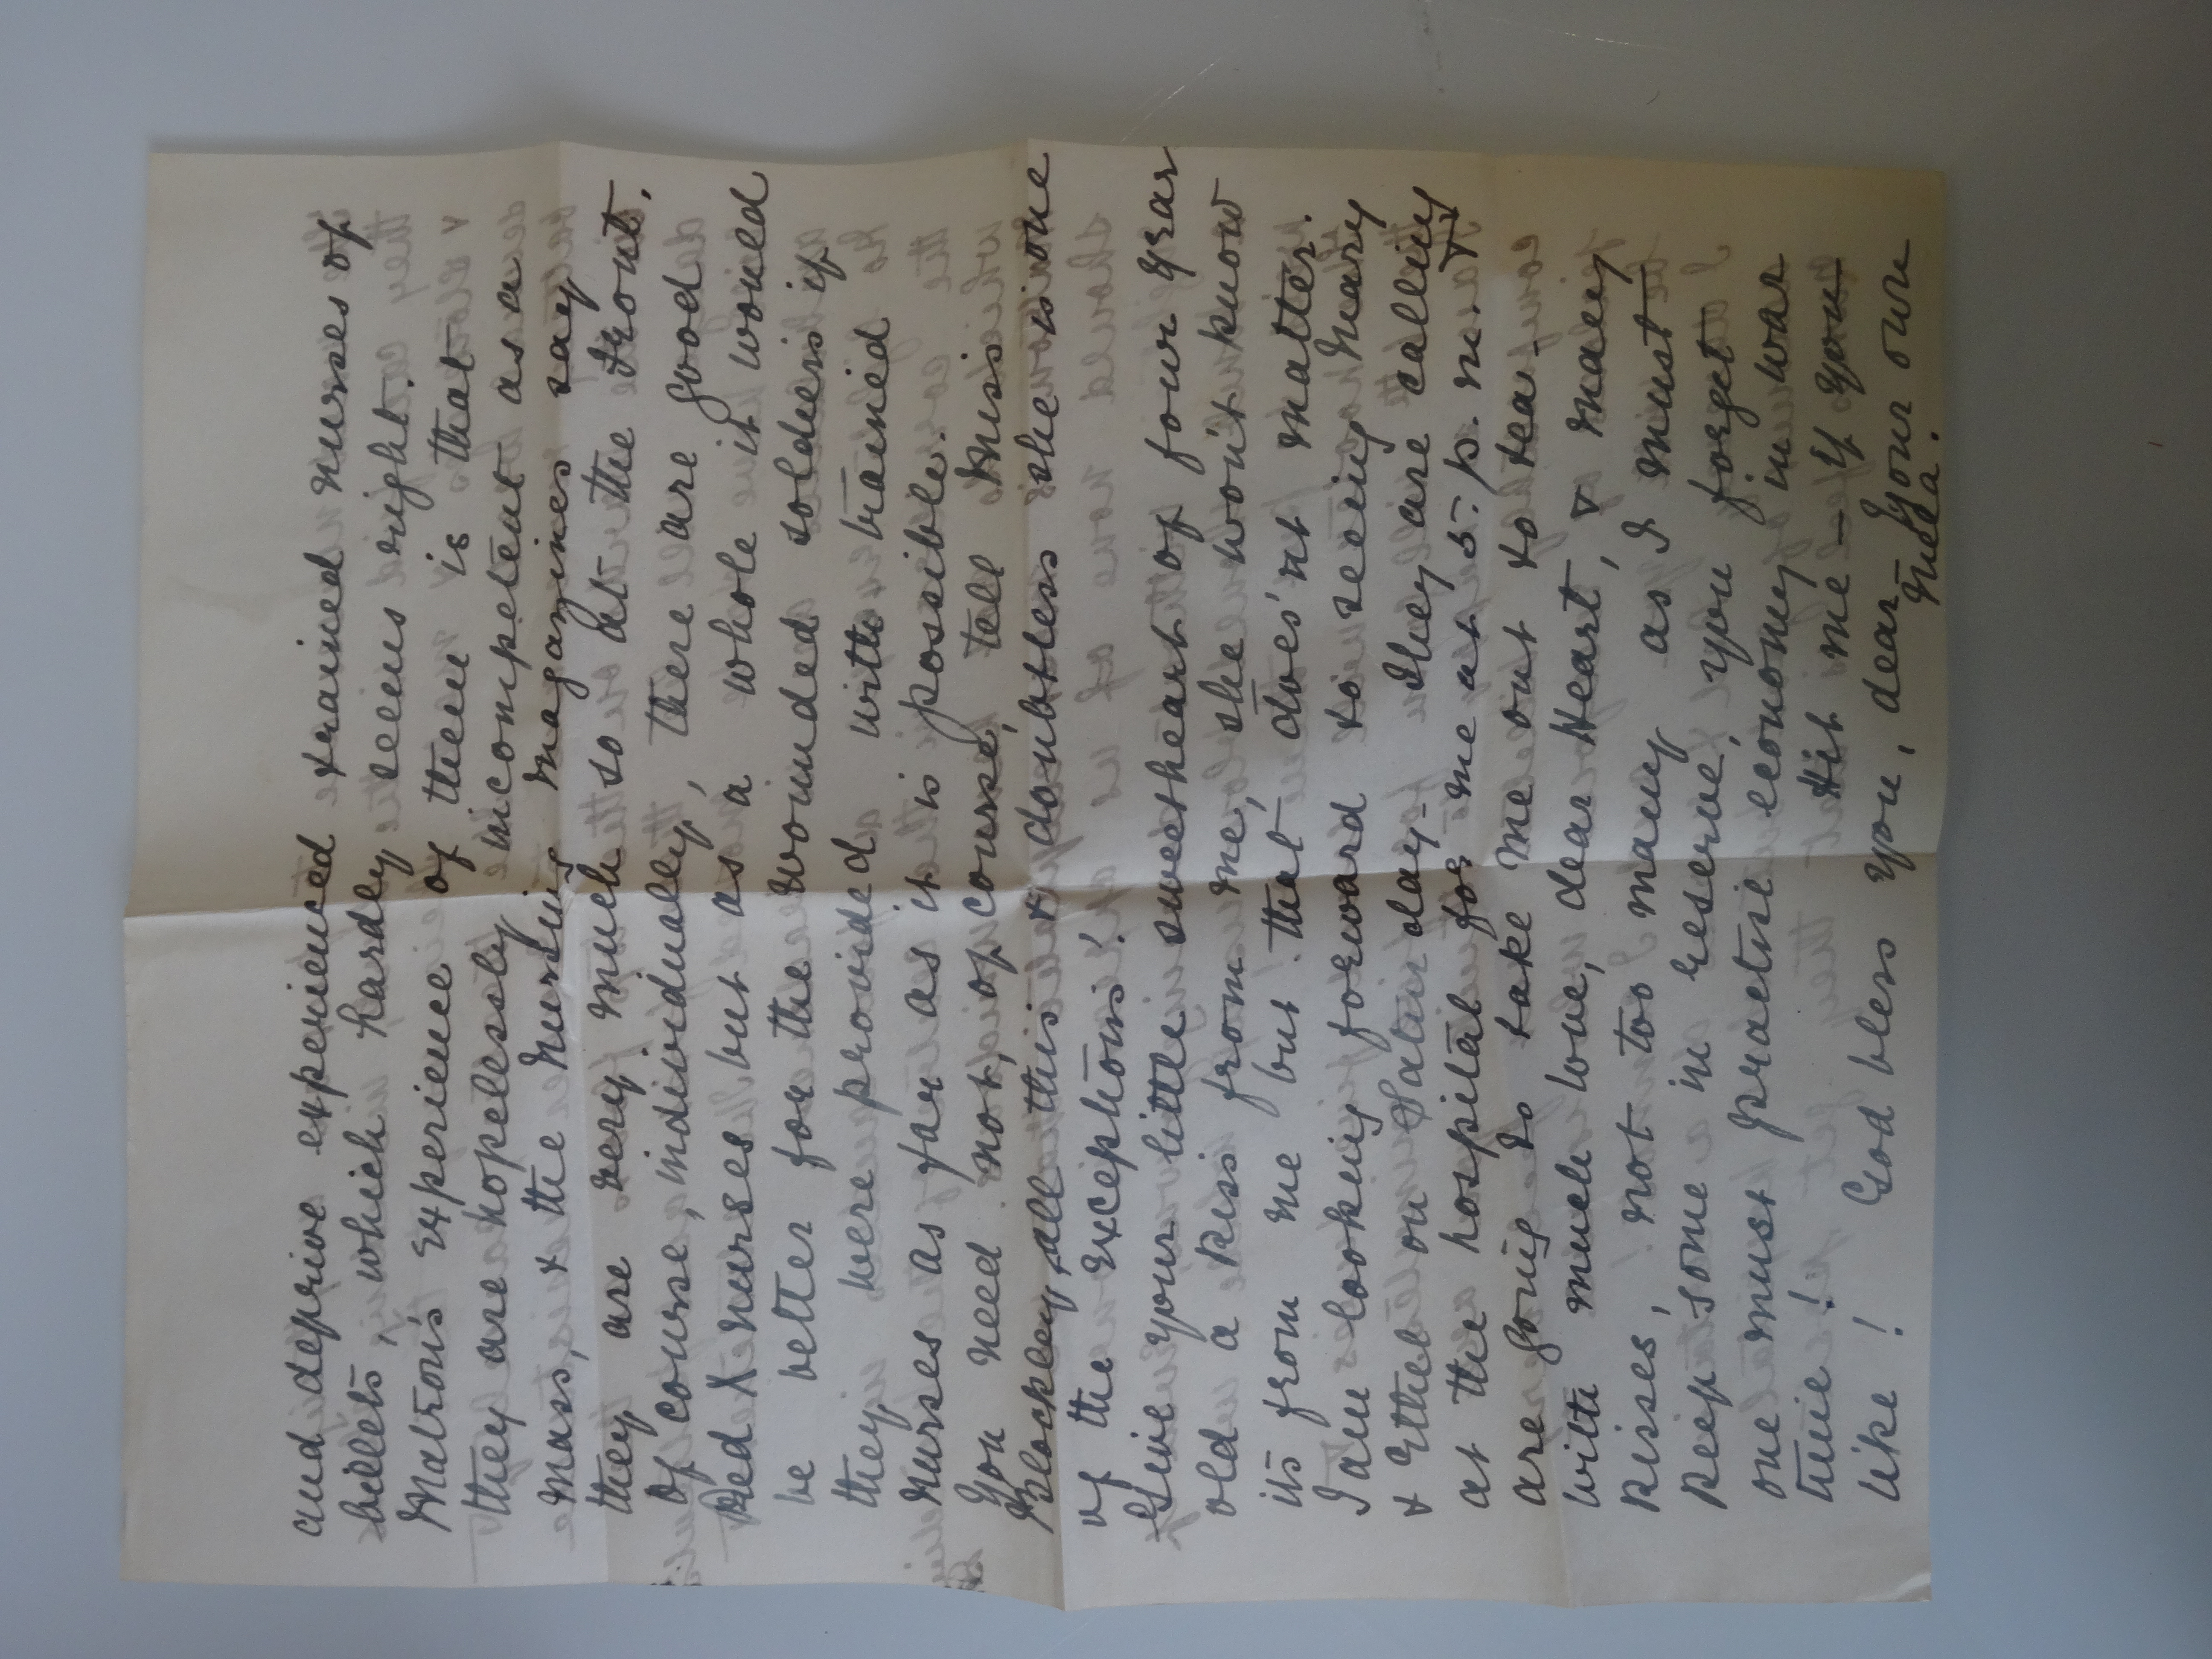 and deprive experienced trained nurses of
billets, which hardly seems right.
Matron's experience of them is that
they are hopelessly incompetent as a
mass, & the Nursing Magazines say
they are very much so at the Front.
Of course, individually, there are good
Red X nurses but as a whole it would
be better for the wounded soldiers if
they were provided with trained
nurses as far as it is possible.
You need not, of course, tell Miss
Blockley all this & doubtless she is one
of the exceptions!
Give your little sweetheart of four year
old a kiss from me, she won't know
its from me but that does'nt matter.
I am looking forward to seeing Mary
& Ethel on Satur day - They are calling
at the hospital for me at 5. p. m. &
are going to take me out to tea -
With much love, dear Heart, & many
kisses, not too many as I must
keep some in reserve, you forget
one must practise economy in war
time! Hit me - if you
like! God bless you, dear Your own